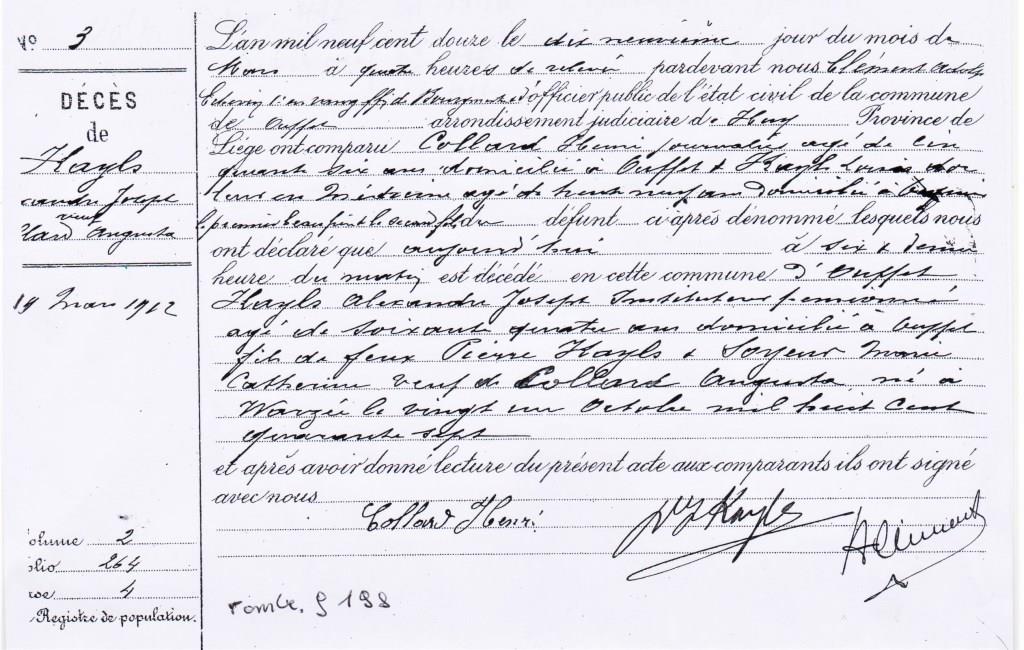 No 3
DÉCÈS
de
Kayls
Joseph
veuf
Augusta
19 Mars 1912
L'an mil neuf cent douze le dix neuvième jour du mois de
Mars à quatre heures de relevée pardevant nous Clément Adolphe
Echevin d'officier public de l'état civil de la commune
de Ouffet arrondissement judiciaire de Huy Province de
Liége ont comparu Collard Henri journalier agé de cin
quante six ans domicilié à Ouffet & Kayls Louis doc
teur en Médecine agé de trente neuf ans domicilié à
le premier beau frère le second fils du défunt ci après dénommé lesquels nous
ont déclaré que aujourd'hui à six & demie
heure du matin est décédé en cette commune d'Ouffet
Kayls Alexandre Joseph Instituteur pensionné
agé de soixante quatre ans domicilié à Ouffet
fils de feux Pierre Kayls & Soyeur Marie
Catherine veuf de Collard Augusta né à
Warzée le vingt un Octobre mil huit cent
quarante sept
et après avoir donné lecture du présent acte aux comparants ils ont signé
avec nous
Collard Henri
Kayls
AClément
olume 2
olio 264
4
Registre de population.
tombe. 9 198